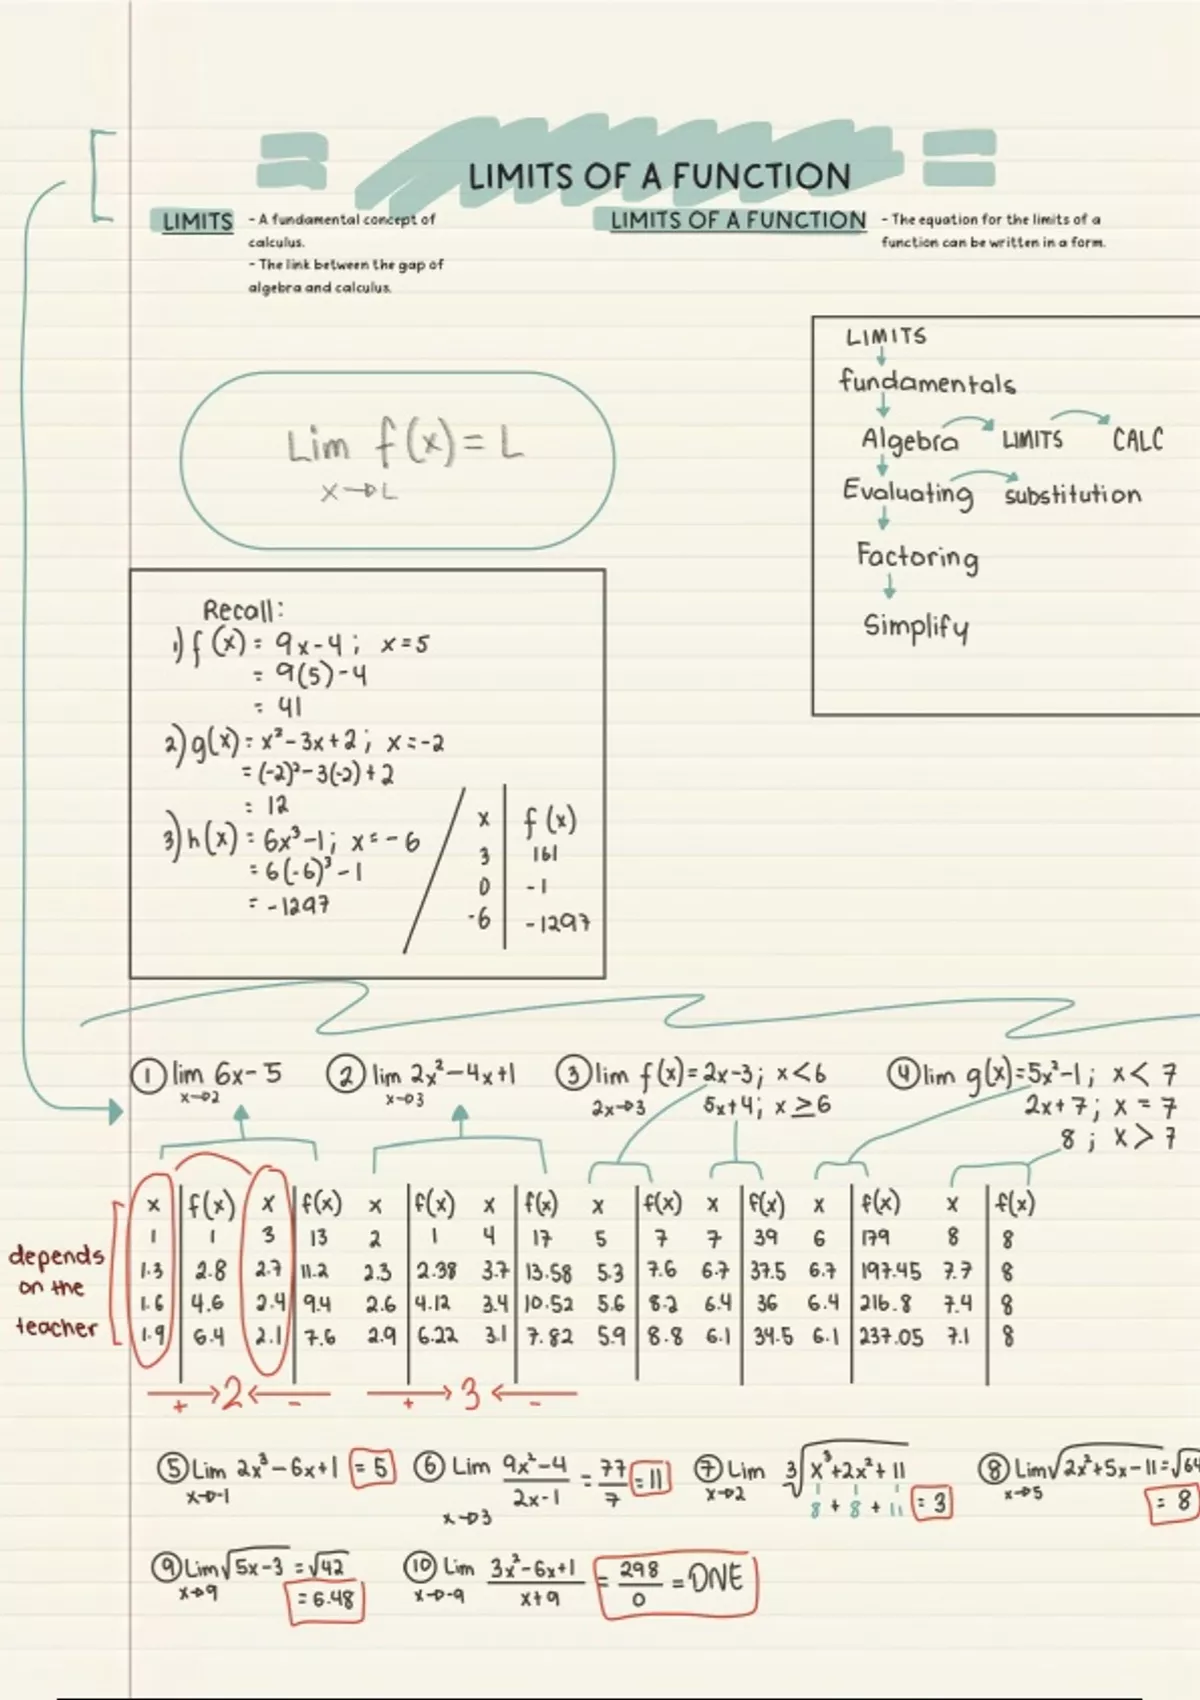 LIMITS OF A FUNCTION
LIMITS
- A fundamental concept of
calculus.
- The link between the gap of
algebra and calculus.
LIMITS OF A FUNCTION
- The equation for the limits of a
function can be written in a form.
Lim f(x) = L
x→L
LIMITS
fundamentals
Algebra LIMITS CALC
Evaluating substitution
Factoring
Simplify
Recall:
1) f(x) = 9x-4; x=5
= 9(5)-4
= 41
2) g(x) = x²-3x+2; x=-2
= (-2)²-3(-2)+2
= 12
3) h(x) = 6x³-1; x=-6
= 6(-6)³-1
= -1297
x f(x)
3 161
0 -1
-6 -1297
① lim 6x-5
x→2
② lim 2x²-4x+1
x→3
③ lim f(x)=2x-3; x<6
2x→3 5x+4; x≥6
④ lim g(x)=5x²-1; x<7
2x+7; x=7
8; x>7
depends
on the
teacher
x f(x) x f(x) x f(x) x f(x) x f(x) x f(x) x f(x) x f(x)
1 1 3 13 2 1 4 17 5 7 7 39 6 179 8 8
1.3 2.8 2.7 11.2 2.3 2.38 3.7 13.58 5.3 7.6 6.7 37.5 6.7 197.45 7.7 8
1.6 4.6 2.4 9.4 2.6 4.12 3.4 10.52 5.6 8.2 6.4 36 6.4 216.8 7.4 8
1.9 6.4 2.1 7.6 2.9 6.22 3.1 7.82 5.9 8.8 6.1 34.5 6.1 237.05 7.1 8
→2← →3←
+ - + -
⑤ Lim 2x³-6x+1 = 5
x→-1
⑥ Lim 9x²-4/2x-1 = 77/7 = 11
x→3
⑦ Lim ³√x³+2x²+11
x→2 8 + 8 + 11 = 3
⑧ Lim √2x²+5x-11 = √64
x→5 = 8
⑨ Lim √5x-3 = √42
x→9 = 6.48
⑩ Lim 3x²-6x+1/x+9 = 298/0 = DNE
x→-9